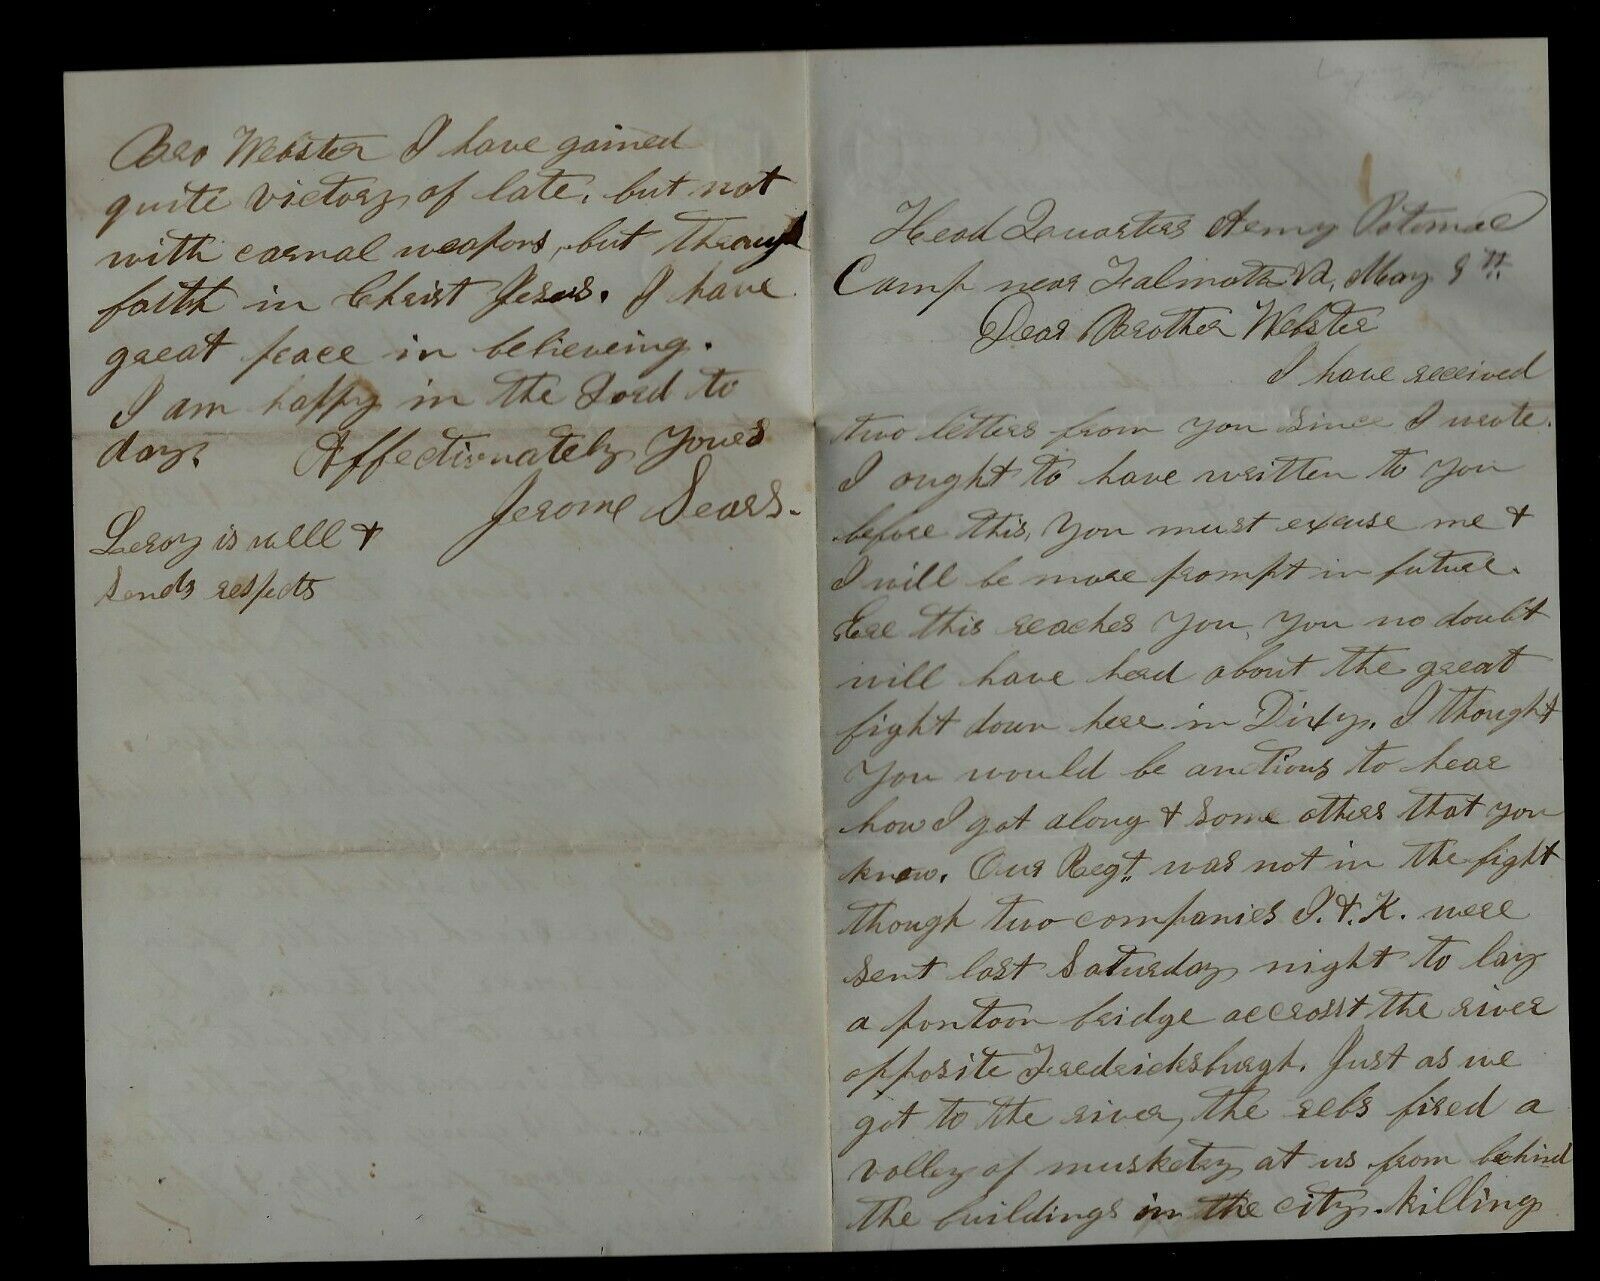 Head Quarters Army Potomac
Camp near Falmouth Va, May 9th
Dear Brother Webster
I have received
two letters from you since I wrote.
I ought to have written to you
before this, you must excuse me &
I will be more prompt in future.
Ere this reaches you, you no doubt
will have herd about the great
fight down here in Dixy. I thought
you would be anctious to hear
how I got along & some others that you
know. Our Regt. was not in the fight
though two companies I. & K. were
sent last Saturday night to lay
a pontoon bridge accrosst the river
opposite Fredricksburgh. Just as we
got to the river, the rebs fired a
volley of musketry at us from behind
the buildings in the city. killing
Bro Webster I have gained
quite victory of late, but not
with carnal weapons, but through
faith in Christ Jesus. I have
great peace in believeing.
I am happy in the Lord to
day. Affectionately yours
Jerome Sears.
Leroy is well &
sends respects